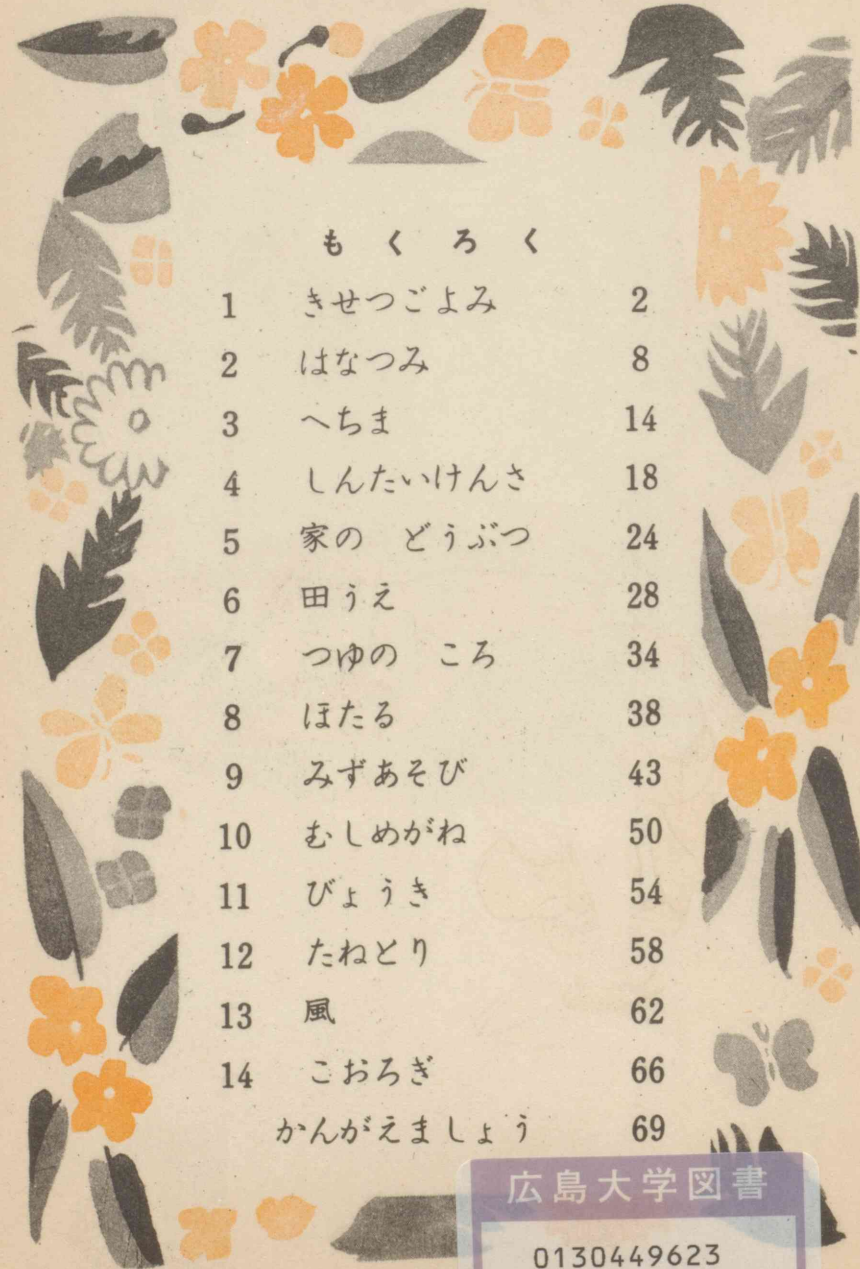 もくろく
1 きせつごよみ 2
2 はなつみ 8
3 へちま 14
4 しんたいけんさ 18
5 家の どうぶつ 24
6 田うえ 28
7 つゆの ころ 34
8 ほたる 38
9 みずあそび 43
10 むしめがね 50
11 びょうき 54
12 たねとり 58
13 風 62
14 こおろぎ 66
かんがえましょう 69
広島大学図書
0130449623